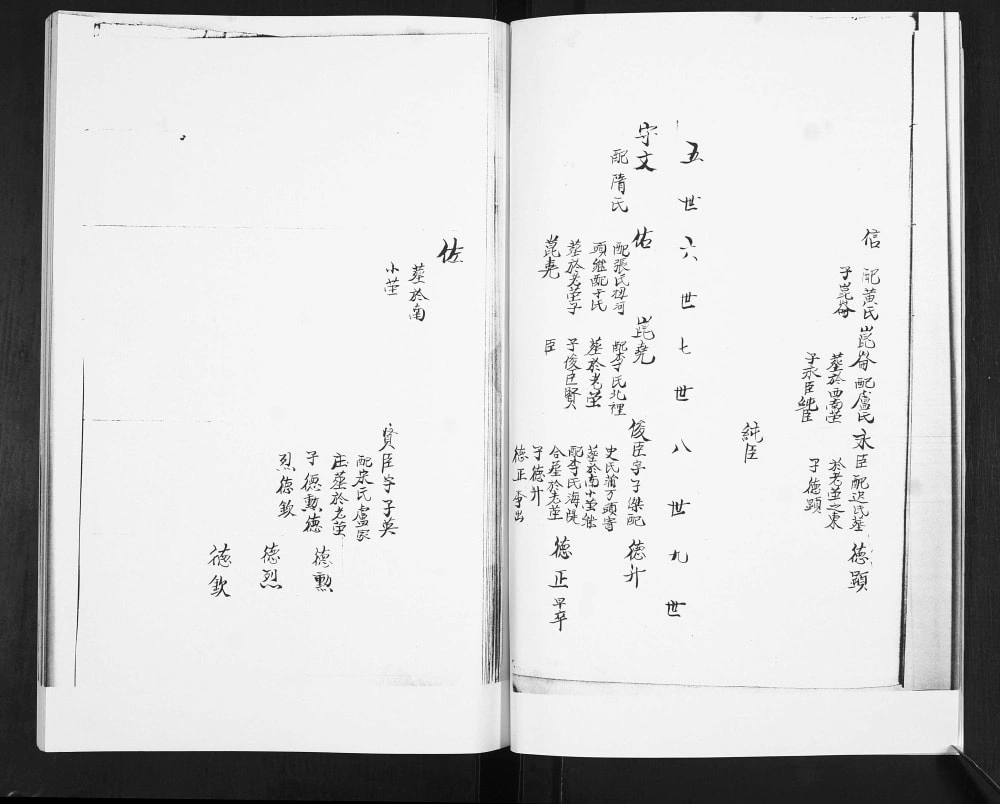 信
配黃氏
子崑崙
崑崙配盧氏
葬於西南茔
子永臣純臣
永臣配遲氏葬
於老茔之東
子德顯
德顯
純臣
五世六世七世八世九世
守文
配隋氏
佑
配張氏
頭繼配于氏
葬於老茔子
崑堯
崑堯
配李氏北裡
葬於老茔
子俊臣賢
臣
俊臣字子傑配
史氏蒲方頭寄
葬於南小茔繼
配李氏海堤
合葬於老茔
子德升
德正李出
德升
德正早卒
佐
葬於南
小茔
賢臣字子英
配宋氏盧家
庄葬於老茔
子德勲德
烈德欽
德勲
德烈
德欽